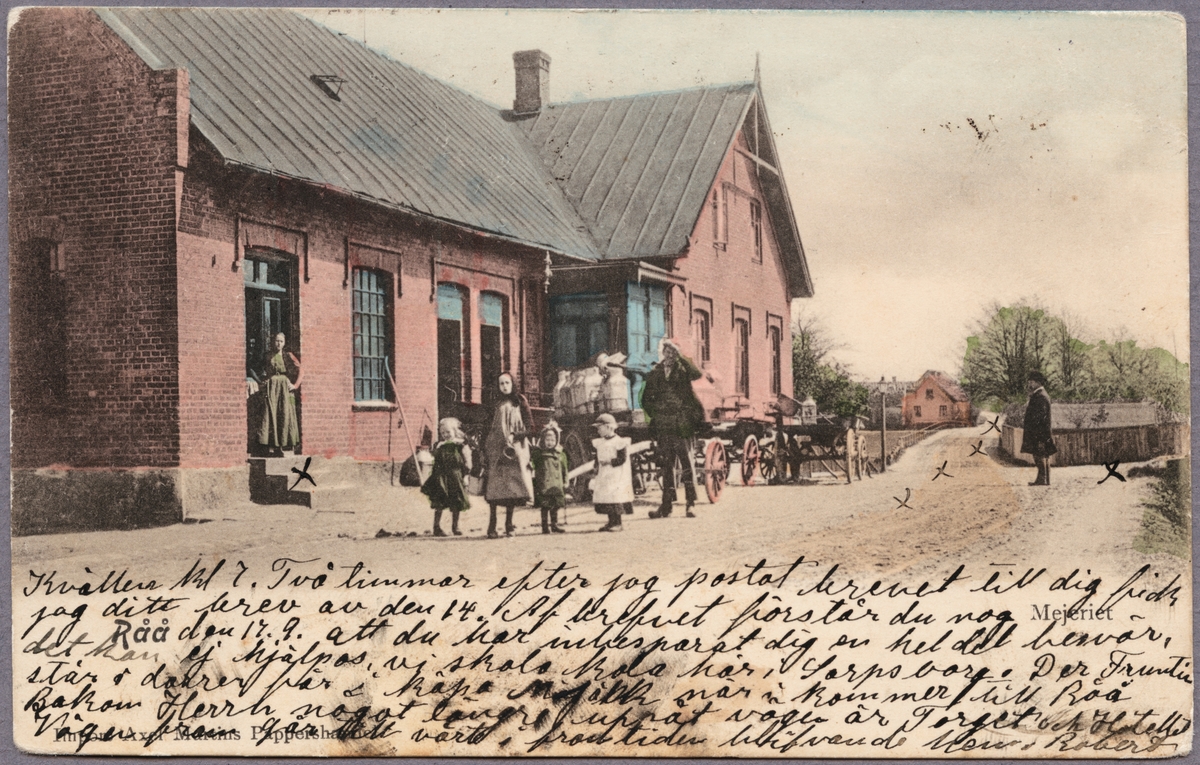 Kvällen kl 7. Två timmar efter jag postat brevet till dig fick
jag ditt brev av den 14. Af brefvet förstår du nog
Mejeriet
Råå den 17.9. att du har inbesparat dig en hel del besvär,
det kan ej hjälpas, vi skola bo här, Sarpsborg. Der Fruntim
står i dörren får i köpa Mjölk när i kommer till Råå
Bakom Herrn något längre uppåt vägen är Torget och Hotellet
Vägen fram går till vårt i framtiden blifvande Hem. Robert
Axel Pappershandel